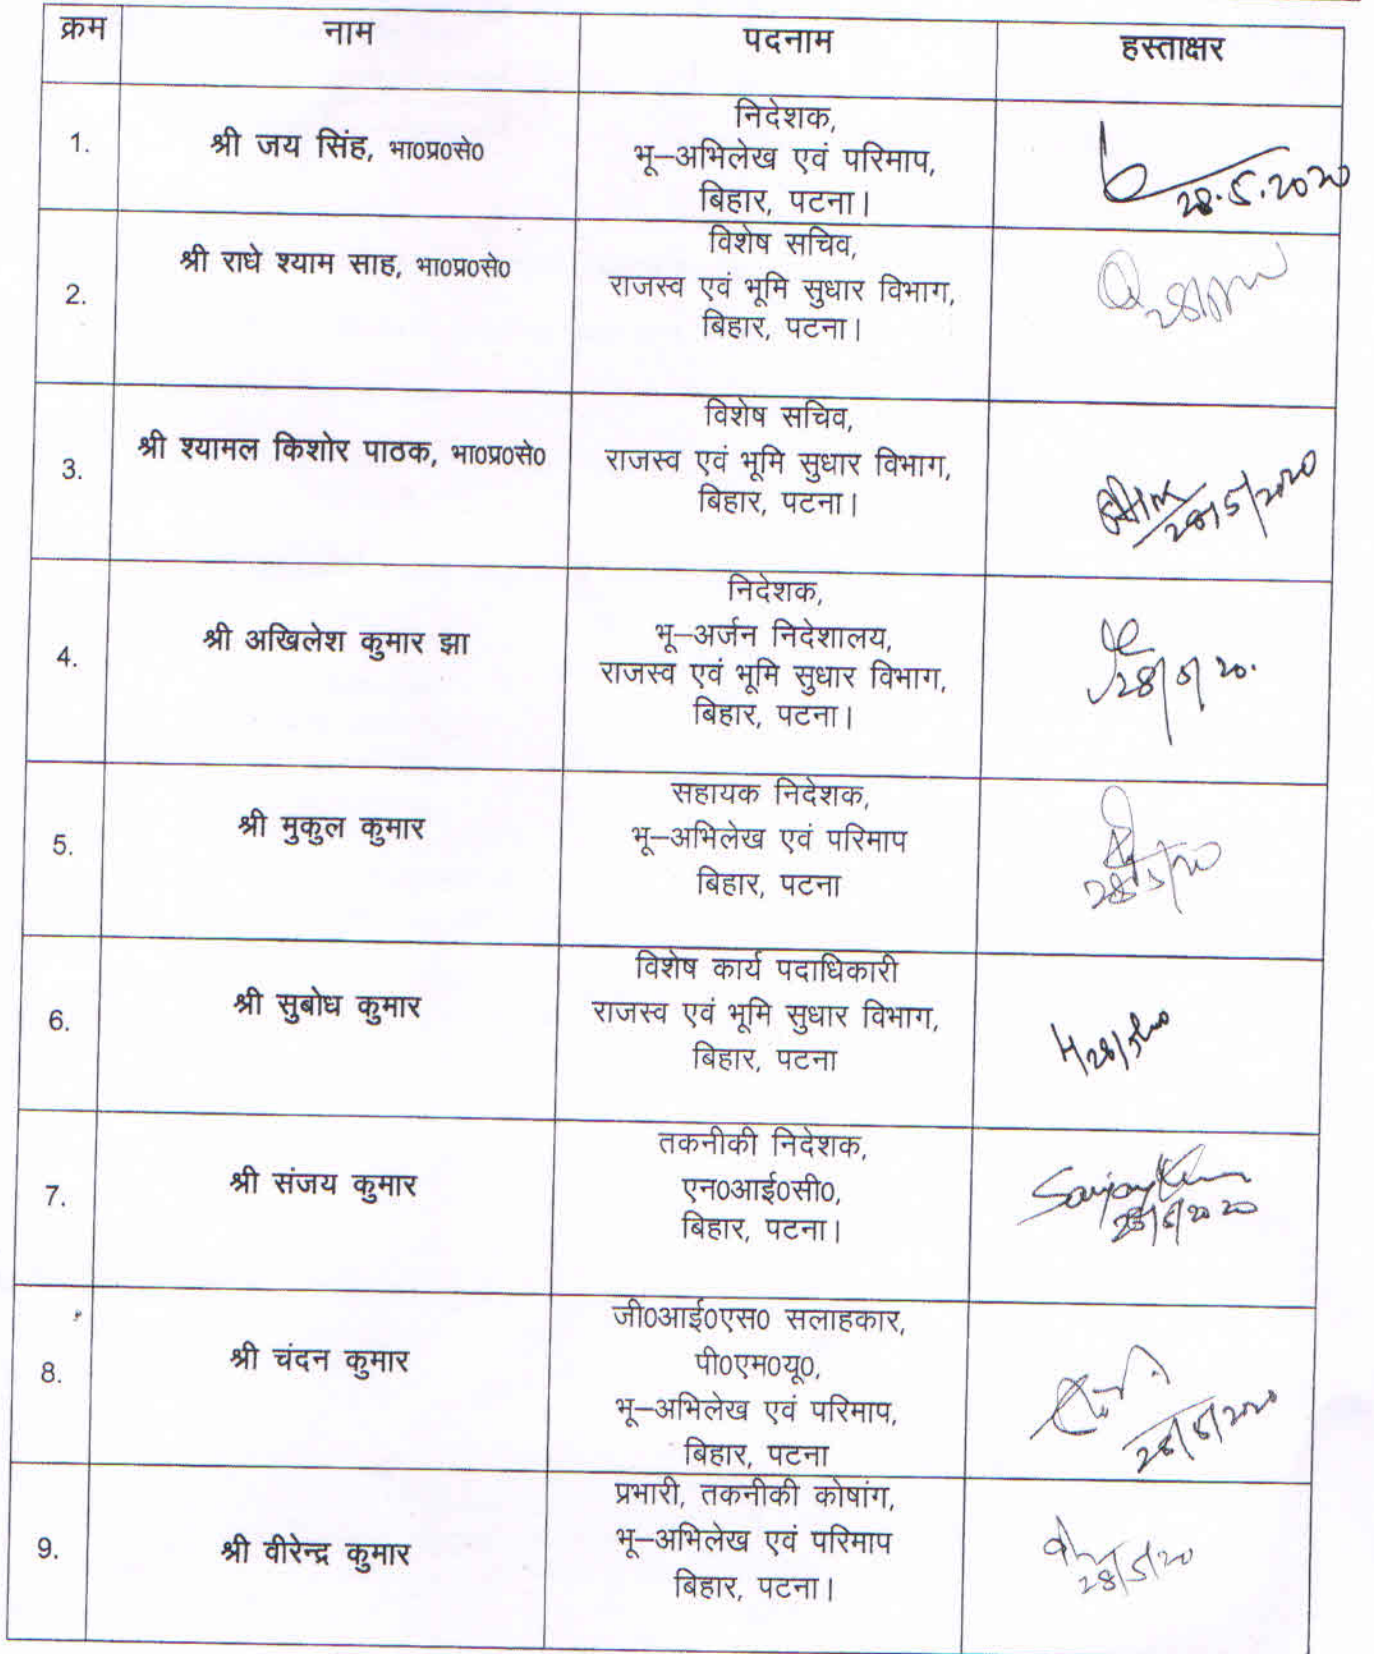 क्रम नाम पदनाम हस्ताक्षर
1. श्री जय सिंह, भा०प्र०से० निदेशक,
भू–अभिलेख एवं परिमाप,
बिहार, पटना।
28.5.2020
2. श्री राधे श्याम साह, भा०प्र०से० विशेष सचिव,
राजस्व एवं भूमि सुधार विभाग,
बिहार, पटना।
3. श्री श्यामल किशोर पाठक, भा०प्र०से० विशेष सचिव,
राजस्व एवं भूमि सुधार विभाग,
बिहार, पटना।
28/5/2020
4. श्री अखिलेश कुमार झा निदेशक,
भू–अर्जन निदेशालय,
राजस्व एवं भूमि सुधार विभाग,
बिहार, पटना।
28/5/20.
5. श्री मुकुल कुमार सहायक निदेशक,
भू–अभिलेख एवं परिमाप
बिहार, पटना
28/5/20
6. श्री सुबोध कुमार विशेष कार्य पदाधिकारी
राजस्व एवं भूमि सुधार विभाग,
बिहार, पटना
7. श्री संजय कुमार तकनीकी निदेशक,
एन०आई०सी०,
बिहार, पटना।
Sanjay Kumar
28/5/2020
8. श्री चंदन कुमार जी०आई०एस० सलाहकार,
पी०एम०यू०,
भू–अभिलेख एवं परिमाप,
बिहार, पटना
28/5/2020
9. श्री वीरेन्द्र कुमार प्रभारी, तकनीकी कोषांग,
भू–अभिलेख एवं परिमाप
बिहार, पटना।
28/5/20